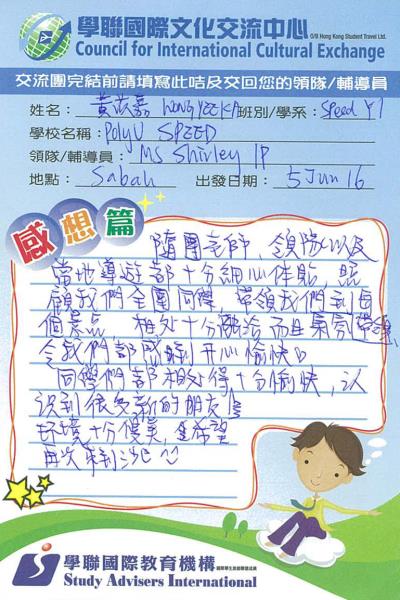 學聯國際文化交流中心
O/B Hong Kong Student Travel Ltd.
Council for International Cultural Exchange
交流團完結前請填寫此咭及交回您的領隊/輔導員
姓名：黃苡嘉 WONG YEE KA 班別/學系：Speed Y1
學校名稱：PolyU SPEED
領隊/輔導員：Ms Shirley IP
地點：Sabah 出發日期：5 Jun 16
感想篇
隨團老師、領隊以及
當地導遊都十分細心体貼，照
顧我們全團同學，帶領我們到每
個景点，相处十分融洽而且氣氛
令我們都感到開心愉快。
同學們都相处得十分愉快，认
识到很多新的朋友！
环境十分優美，希望
再次来到沙巴
學聯國際教育機構
Study Advisers International